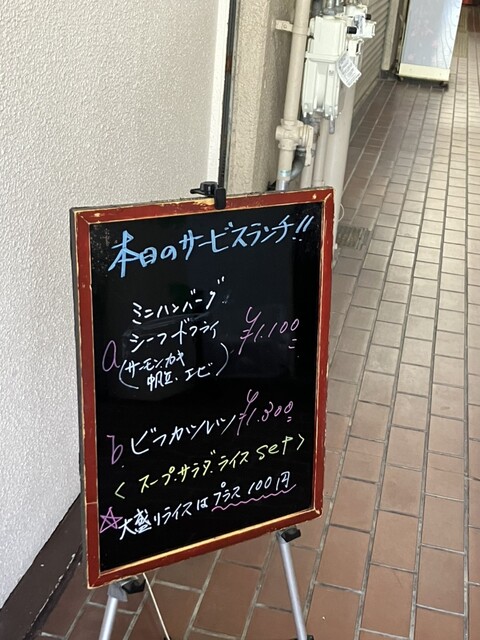 本日のサービスランチ!!
ミニハンバーグ
a シーフードフライ ¥1.100
(サーモン.カキ
帆立.エビ.)
b. ビフカツレツ ¥1.300
<スープ.サラダ.ライス set>
☆大盛りライスはプラス100円